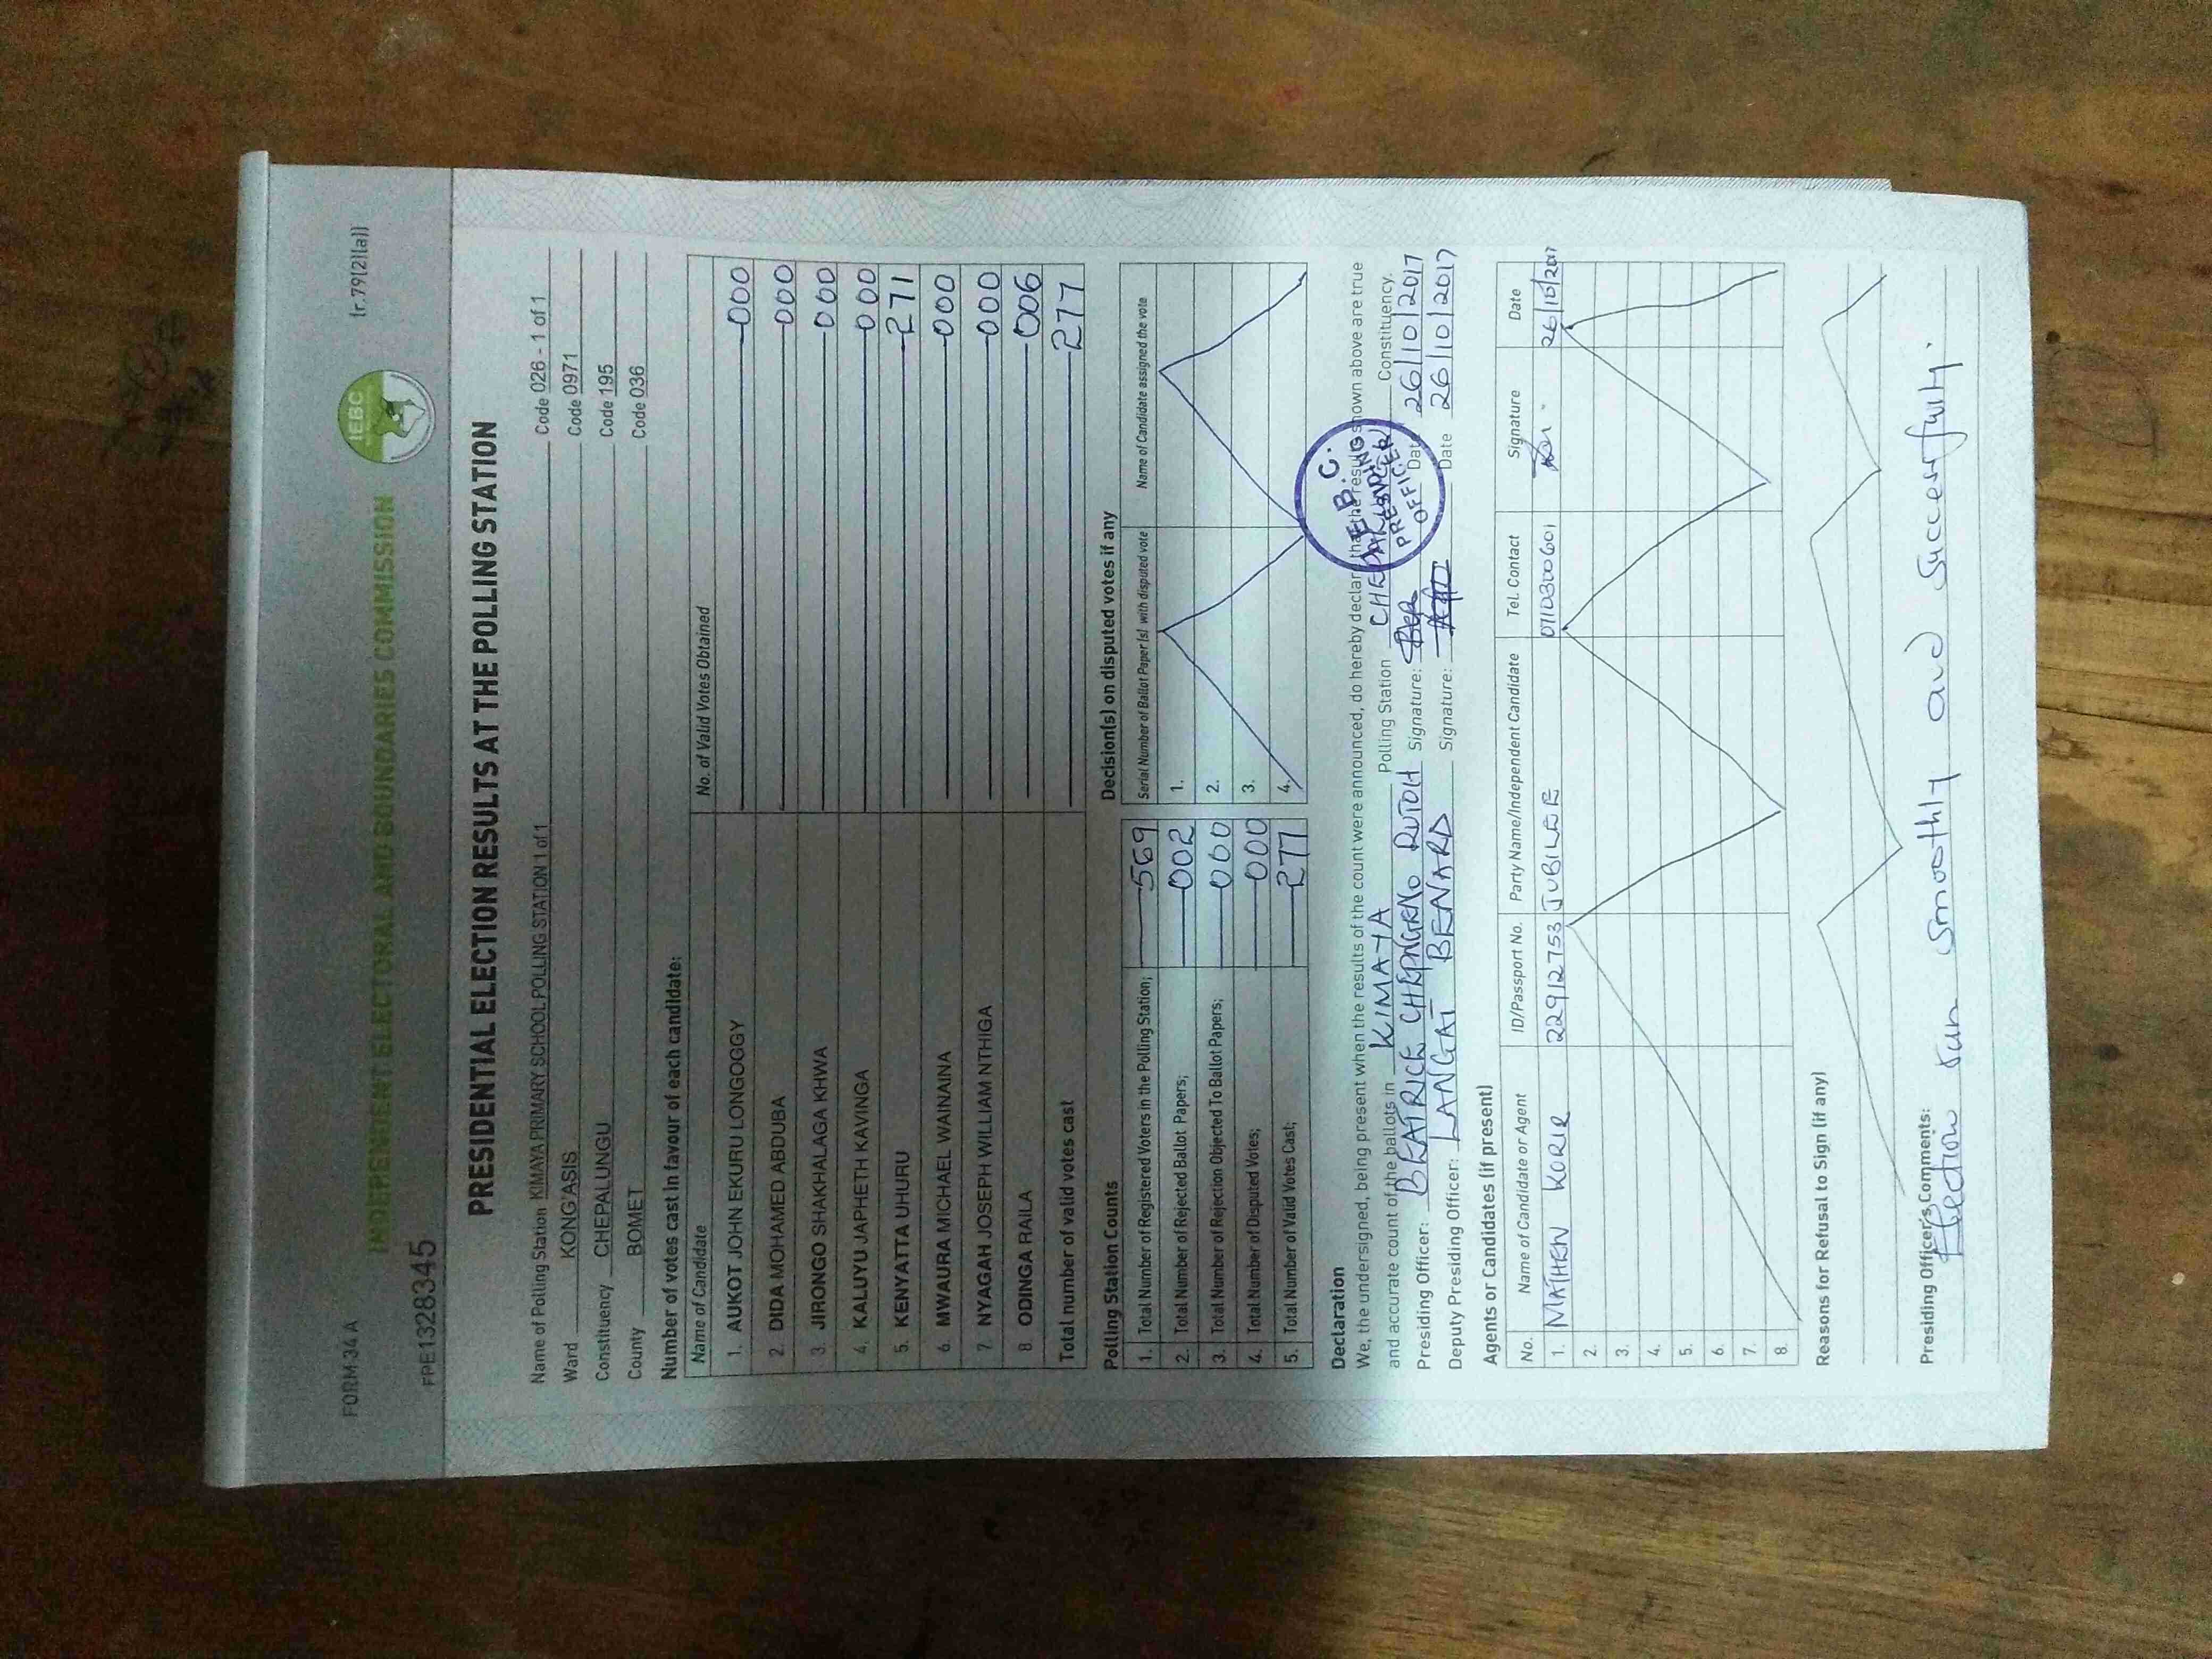 FORM 34 A
(r.79(2)(a))
INDEPENDENT ELECTORAL AND BOUNDARIES COMMISSION
IEBC
FPE1328345
PRESIDENTIAL ELECTION RESULTS AT THE POLLING STATION
Name of Polling Station KIMAYA PRIMARY SCHOOL POLLING STATION 1 of 1 Code 026 - 1 of 1
Ward KONG'ASIS Code 0971
Constituency CHEPALUNGU Code 195
County BOMET Code 036
Number of votes cast in favour of each candidate:
Name of Candidate No. of Valid Votes Obtained
1. AUKOT JOHN EKURU LONGOGGY 000
2. DIDA MOHAMED ABDUBA 000
3. JIRONGO SHAKHALAGA KHWA 000
4. KALUYU JAPHETH KAVINGA 000
5. KENYATTA UHURU 271
6. MWAURA MICHAEL WAINAINA 000
7. NYAGAH JOSEPH WILLIAM NTHIGA 000
8 ODINGA RAILA 006
Total number of valid votes cast 277
Polling Station Counts
1. Total Number of Registered Voters in the Polling Station; 569
2. Total Number of Rejected Ballot Papers; 002
3. Total Number of Rejection Objected To Ballot Papers; 000
4. Total Number of Disputed Votes; 000
5. Total Number of Valid Votes Cast; 277
Decision(s) on disputed votes if any
Serial Number of Ballot Paper (s) with disputed vote Name of Candidate assigned the vote
1.
2.
3.
4.
Declaration
We, the undersigned, being present when the results of the count were announced, do hereby declare that the results shown above are true
and accurate count of the ballots in KIMAYA Polling Station CHEPALUNGU Constituency.
Presiding Officer: BEATRICE CHEPNGENO RUTOH Signature: Date 26/10/2017
Deputy Presiding Officer: LANGAT BENARD Signature: Date 26/10/2017
I.E.B.C.
PRESIDING
OFFICER
Agents or Candidates (if present)
No. Name of Candidate or Agent ID/Passport No. Party Name/Independent Candidate Tel. Contact Signature Date
1. MATHEW KORIR 22912753 JUBILEE 0710300601 26/10/2017
2.
3.
4.
5.
6.
7.
8.
Reasons for Refusal to Sign (if any)
Presiding Officer's Comments:
Election run smoothly and succesfully.